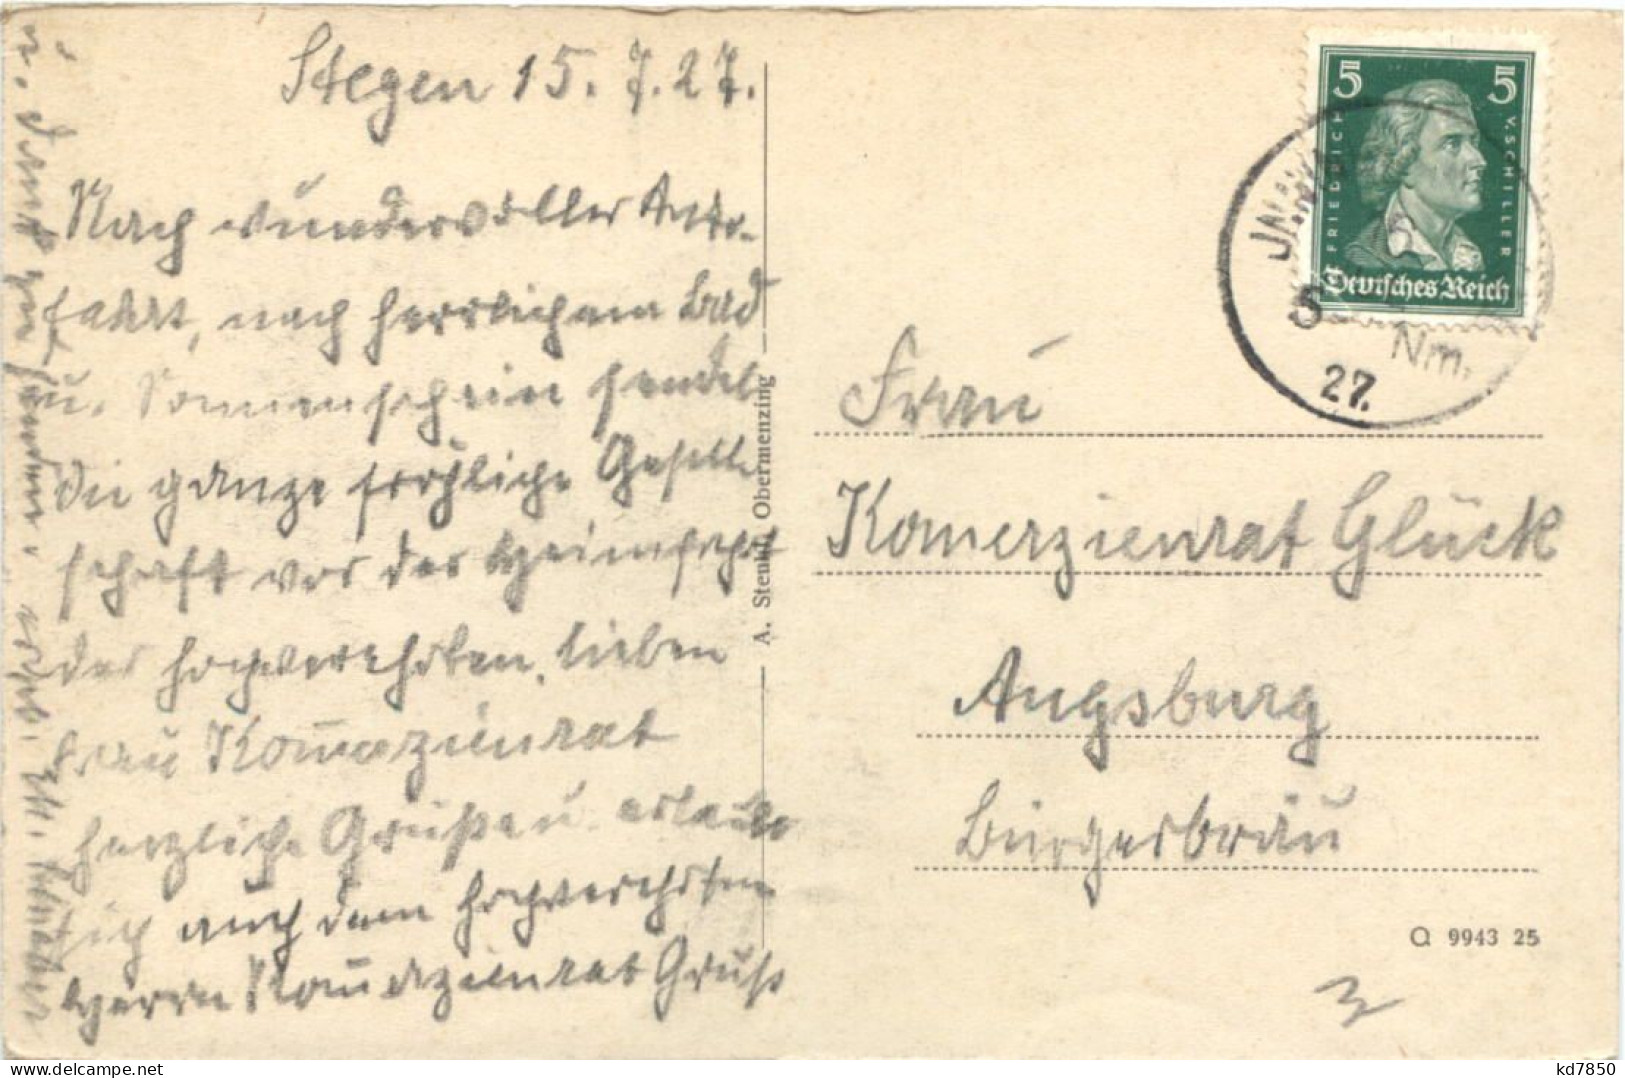 Stegen 15.7.27.
Nach wundervoller Auto-
fahrt, nach herrlichem Bad
u. Sonnenschein sendet
die ganze fröhliche Gesell-
schaft vor der Heimfahrt
der hochverehrten, lieben
Frau Komerzienrat
herzliche Grüße u. erlaube
mich auch dem hochverehrten
Herrn Komerzienrat Gruß
u. Dank zu senden.
A. Stenkl, Obermenzing
5 5
FRIEDRICH V. SCHILLER
Deutsches Reich
5 Nm.
27.
Frau
Komerzienrat Glück
Augsburg
Bürgerbräu
Q 9943 25
kd7850